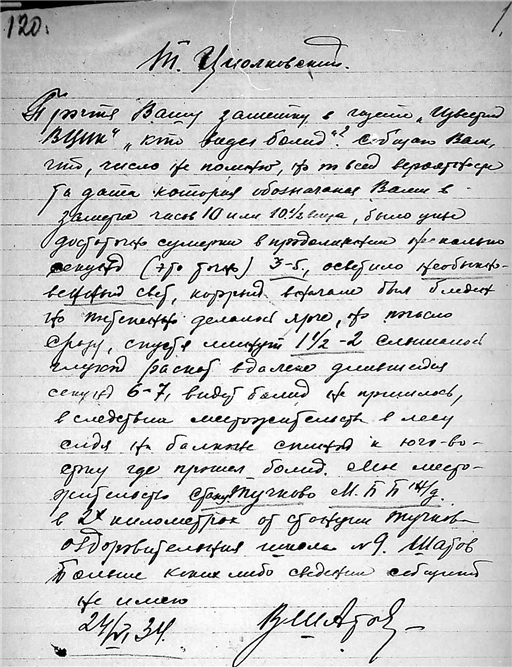 120.
1
Т. Циолковский.
Прочтя Вашу заметку в газете „Известия
ВЦИК" „кто видел болид"? Сообщаю Вам,
что, число не помню, но по всей вероятности
та дата которая обозначена Вами в
заметке часов 10 или 10½ вечера, было уже
достаточно сумерки в продолжении несколько
секунд (это точно) 3-5, осветило необыкно-
венный свет, который вначале был бледен
но постепенно делался ярче, но погасло
сразу, спустя минут 1½-2 слышался
глухой раскат вдалеке длившийся
секунд 6-7, видеть болид не пришлось,
вследствие местожительства в лесу
сидя на балконе спиной к юго-во-
стоку где прошел болид. Мое место-
жительство Тучково М. Б Б ж/д.
в 2х километрах от станции Тучково
оздоровительная школа №9. Шатов
Больше каких либо сведений сообщить
не имею
24/VI 34. ВШатов